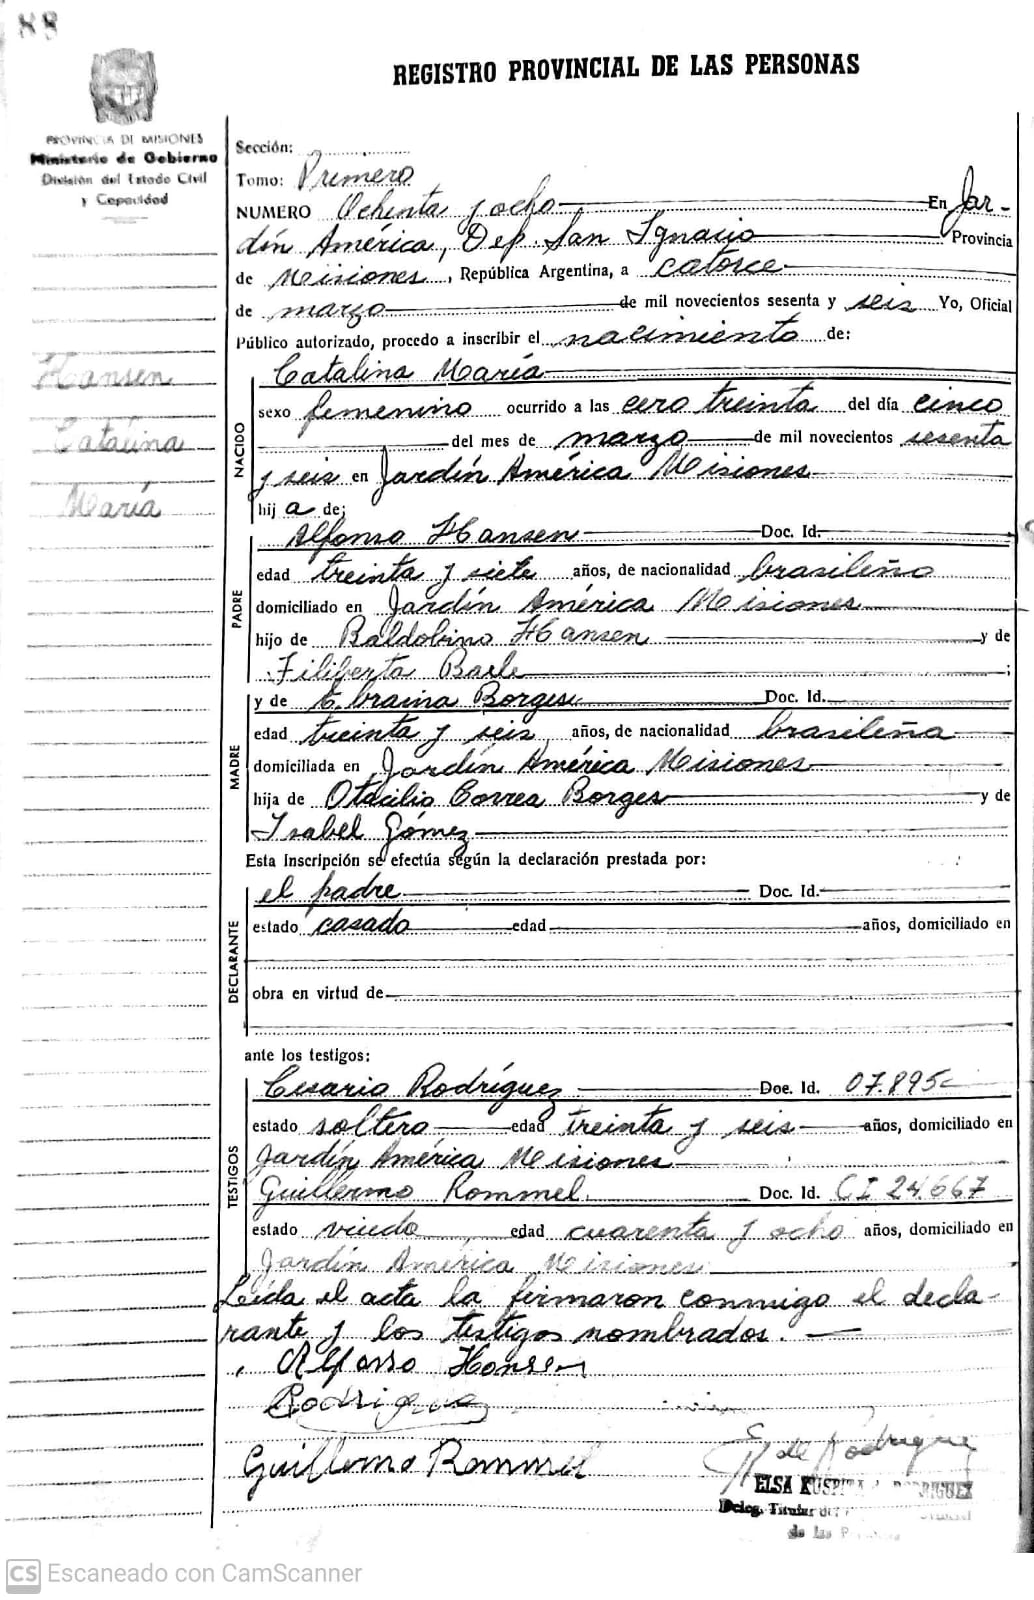 88
REGISTRO PROVINCIAL DE LAS PERSONAS
PROVINCIA DE MISIONES
Ministerio de Gobierno
División del Estado Civil
y Capacidad
Sección:
Tomo: Primero
NUMERO Ochenta y ocho En Jar-
dín América, Dep. San Ignacio Provincia
de Misiones, República Argentina, a catorce
de marzo de mil novecientos sesenta y seis Yo, Oficial
Público autorizado, procedo a inscribir el nacimiento de:
Hansen
Catalina
María
NACIDO
Catalina María
sexo femenino ocurrido a las cero treinta del día cinco
del mes de marzo de mil novecientos sesenta
y seis en Jardín América Misiones
hij a de;
PADRE
Alfonso Hansen Doc. Id.
edad treinta y siete años, de nacionalidad brasileño
domiciliado en Jardín América Misiones
hijo de Baldobino Hansen y de
Filiberta ;
MADRE
y de Borges Doc. Id.
edad treinta y seis años, de nacionalidad brasileña
domiciliada en Jardín América Misiones
hija de Otacilio Correa Borges y de
Isabel Gómez
Esta inscripción se efectúa según la declaración prestada por:
DECLARANTE
el padre Doc. Id.
estado casado edad años, domiciliado en
obra en virtud de
ante los testigos:
TESTIGOS
Cesario Rodríguez Doc. Id. 07.895
estado soltero edad treinta y seis años, domiciliado en
Jardín América Misiones
Guillermo Rommel Doc. Id. CI 24.667
estado viudo edad cuarenta y ocho años, domiciliado en
Jardín América Misiones
Leída el acta la firmaron conmigo el decla-
rante y los testigos nombrados.
Alfonso Hansen
Rodriguez
Guillermo Rommel
E. de Rodriguez
ELSA RODRIGUEZ
Deleg. Titular del
de las
CS Escaneado con CamScanner